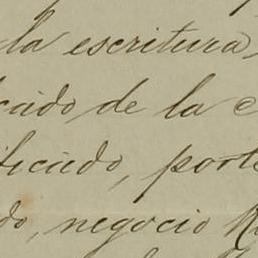 la escritura,
cado de la c
ificado, porte
do, negocio Ro